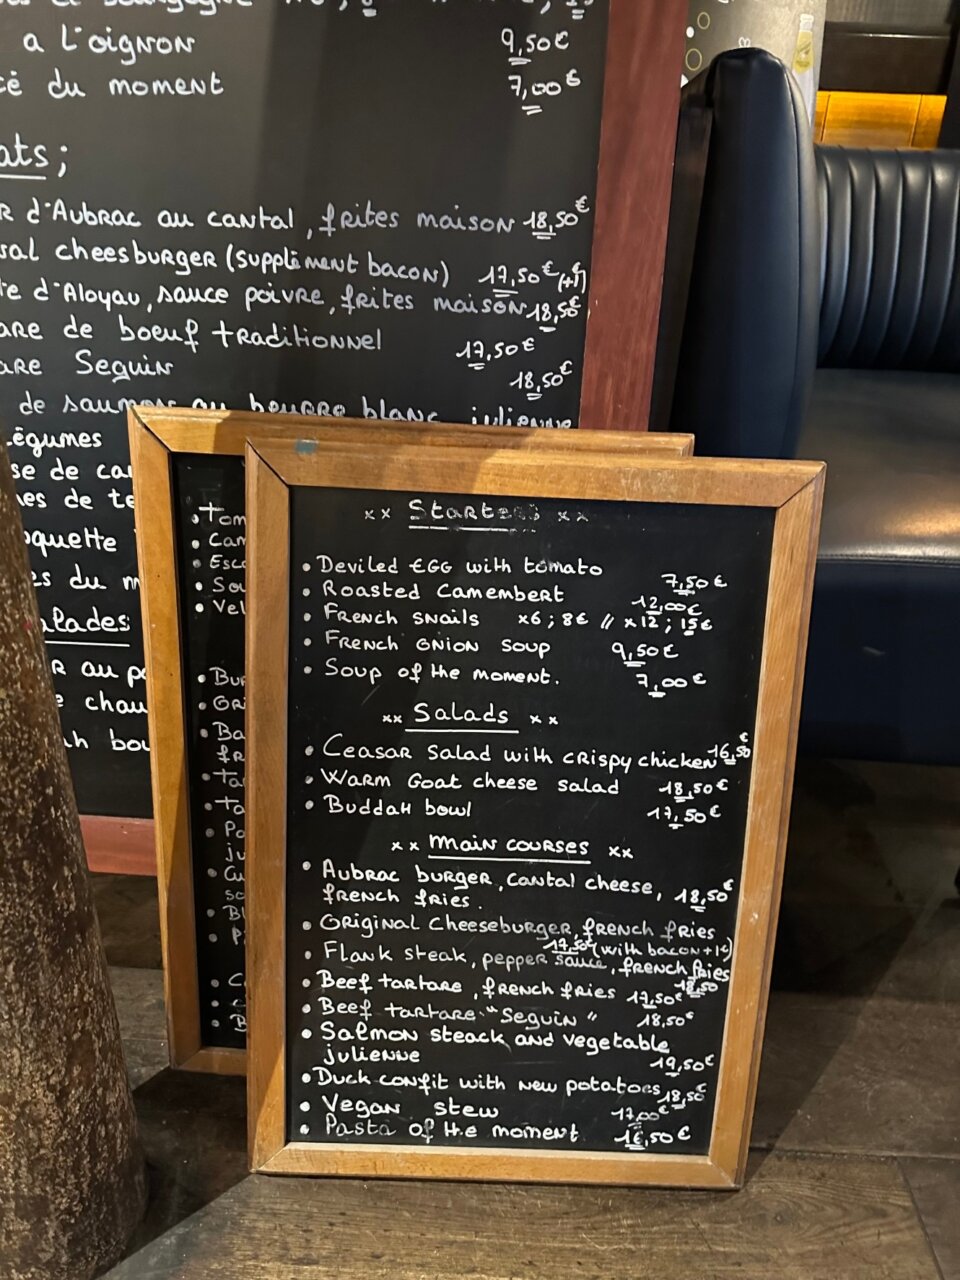 a l'oignon 9,50€
du moment 7,00€
d'Aubrac au cantal, frites maison 18,50€
cheesburger (supplément bacon) 17,50€ (+1€)
d'Aloyau, sauce poivre, frites maison 18,50€
de boeuf traditionnel 17,50€
Seguin 18,50€
de saumon au beurre blanc, julienne
légumes
de
de
du
au
xx Starters xx
• Deviled EGG with tomato 7,50€
• Roasted Camembert 12,00€
• French snails x6 ; 8€ // x12 ; 15€
• French onion soup 9,50€
• Soup of the moment. 7,00€
xx Salads xx
• Ceasar salad with crispy chicken 16,50€
• Warm Goat cheese salad 18,50€
• Buddah bowl 17,50€
xx Main courses xx
• Aubrac burger, cantal cheese, 18,50€
french fries.
• Original Cheeseburger, french fries
17,50€ (with bacon +1€)
• Flank steak, pepper sauce, french fries
18,50
• Beef tartare, french fries 17,50€
• Beef tartare "Seguin" 18,50€
• Salmon steack and vegetable
julienne 19,50€
• Duck confit with new potatoes 18,50€
• Vegan stew 17,00€
• Pasta of the moment 16,50€